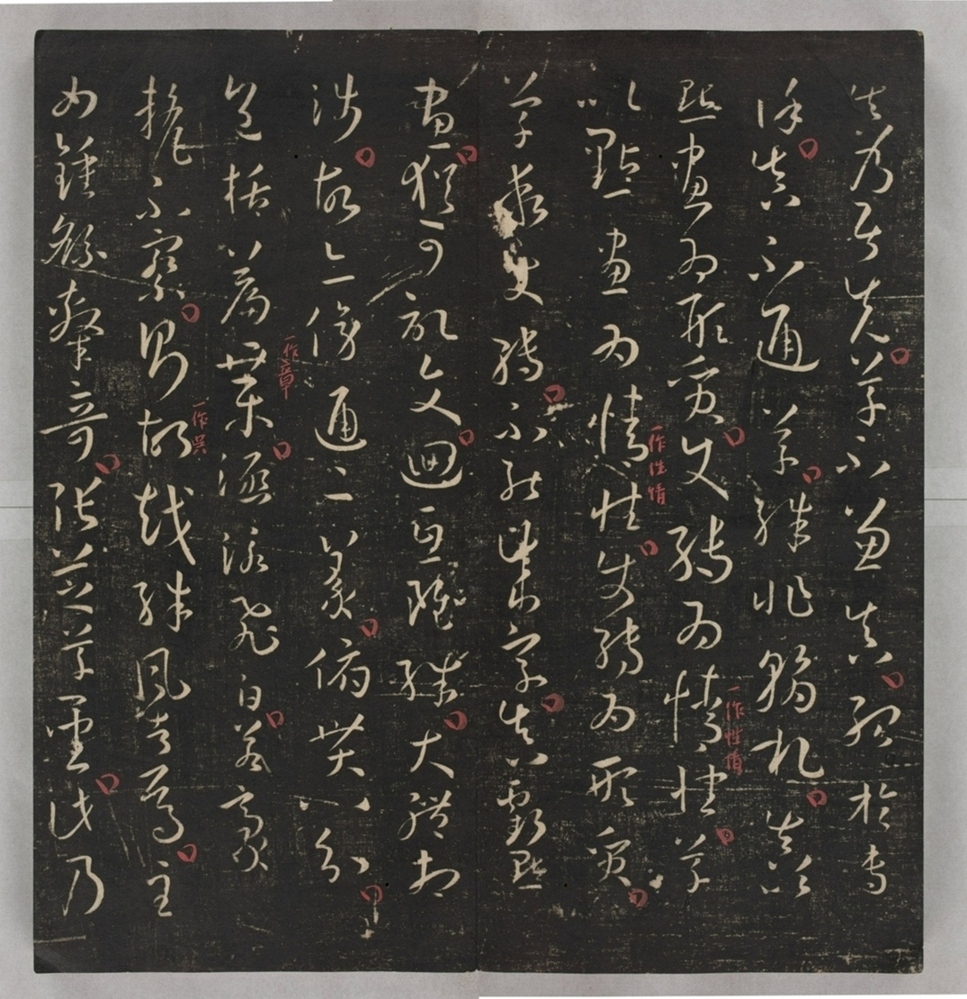 真乃居先草不兼真殆於專
謹真不通草殊非翰札真以
點畫為形質使轉為情性草
一作性情
以點畫為情性使轉為形質
一作性情
草乖使轉不能成字真虧點
畫猶可記文迴互雖殊大體相
涉故亦傍通二篆俯貫八分
包括篇葉涵泳飛白若豪
一作章
氂不察則胡越殊風者焉至
一作吳
如鍾繇隸奇張芝草聖此乃